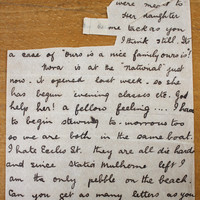 were me t to
Her daughter
me tack as you
I think still. It's
a case of "ours is a nice family ours is"!
Nora is at the "National" just
now. it opened last week. so she
has begun evening classes etc. God
help her! a fellow feeling.... I have
to begin stewing to-morrow too
so we are both in the same boat.
I hate Eccles St. they are all die hards
and since Statia Mulhorne left I
am the only pebble on the beach.
Can you get as many letters as you